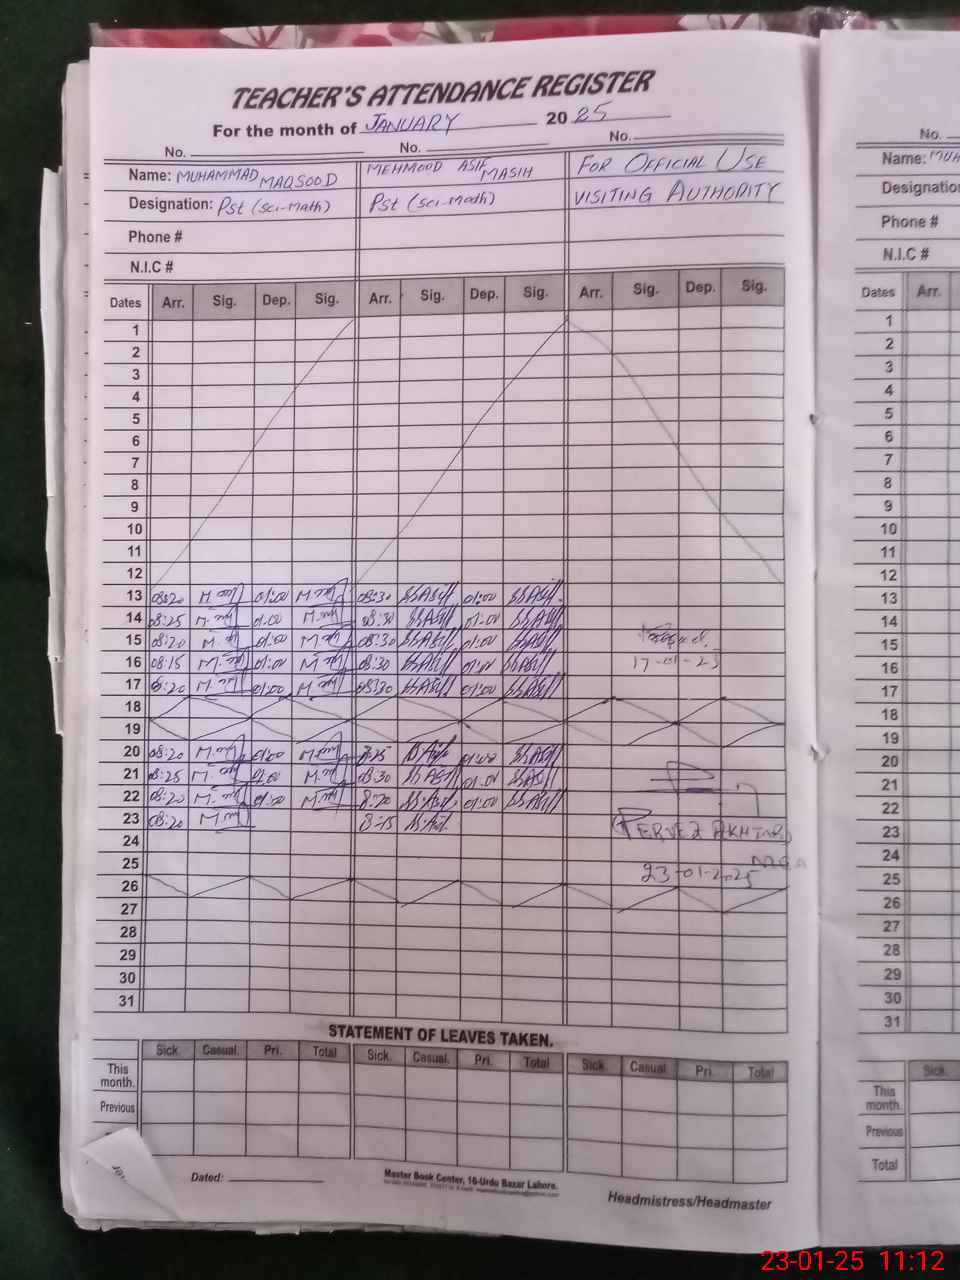 TEACHER'S ATTENDANCE REGISTER
For the month of JANUARY 2025
No. No. No.
Name: MUHAMMAD MAQSOOD MEHMOOD ASIF MASIH FOR OFFICIAL USE
Designation: Pst (sci-math) Pst (sci-math) VISITING AUTHORITY
Phone #
N.I.C #
Dates Arr. Sig. Dep. Sig. Arr. Sig. Dep. Sig. Arr. Sig. Dep. Sig.
1
2
3
4
5
6
7
8
9
10
11
12
13 08:20 01:00 08:30 01:00
14 08:25 01:00 08:30 01:00
15 08:20 01:00 08:30 01:00
16 08:15 01:00 08:30 01:00 17-01-25
17 8:20 01:00 08:30 01:00
18
19
20 08:20 01:00 01:00
21 08:25 01:00 08:30 01:00
22 08:20 01:00 8:20 01:00
23 08:20 8:15 PERVEZ AKHTAR
24 MEA
25 23-01-2025
26
27
28
29
30
31
STATEMENT OF LEAVES TAKEN.
Sick. Casual. Pri. Total Sick. Casual. Pri. Total Sick. Casual Pri. Total
This month.
Previous
Dated:
Master Book Center, 16-Urdu Bazar Lahore.
Headmistress/Headmaster
No.
Name: MUH
Designation
Phone #
N.I.C #
Dates Arr.
1
2
3
4
5
6
7
8
9
10
11
12
13
14
15
16
17
18
19
20
21
22
23
24
25
26
27
28
29
30
31
Sick.
This month.
Previous
Total
23-01-25 11:12